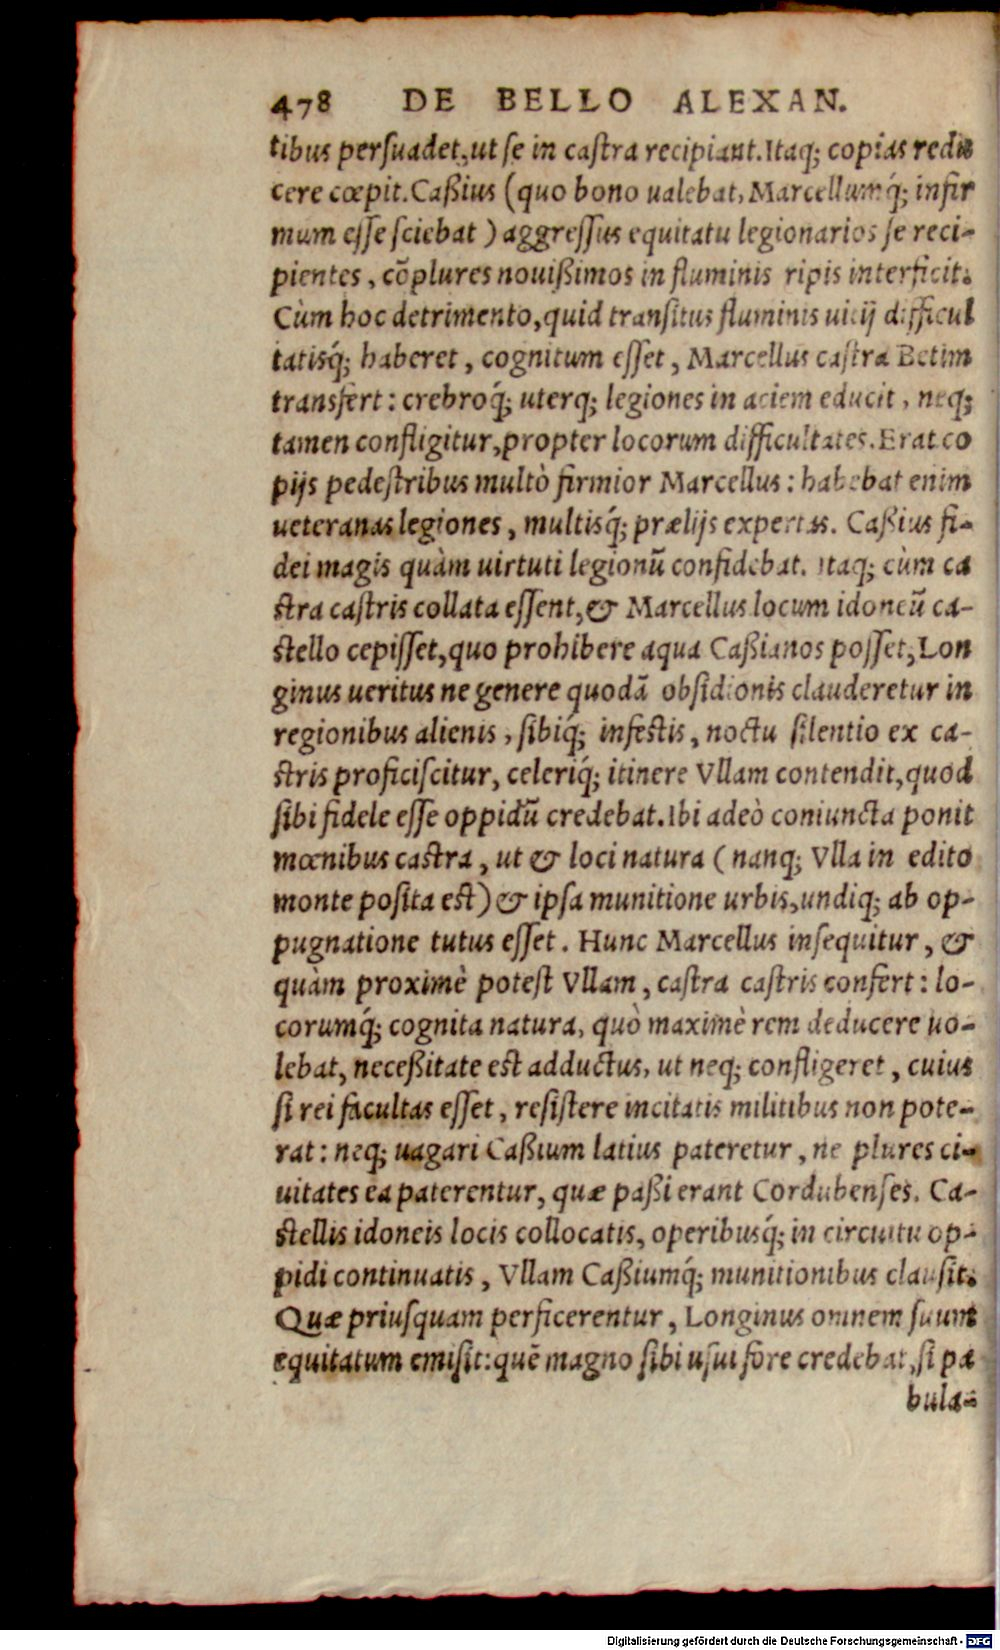 478 DE BELLO ALEXAN.
tibus persuadet, ut se in castra recipiant. Itaq; copias redu
cere cœpit. Caßius (quo bono ualebat, Marcellumq́; infir
mum esse sciebat) aggressus equitatu legionarios se reci-
pientes, cõplures nouißimos in fluminis ripis interficit.
Cùm hoc detrimento, quid transitus fluminis uitij difficul
tatisq́; haberet, cognitum esset, Marcellus castra Betim
transfert: crebroq́; uterq; legiones in aciem educit, neq;
tamen confligitur, propter locorum difficultates. Erat co
pijs pedestribus multò firmior Marcellus: habebat enim
ueteranas legiones, multisq́; prælijs expertas. Caßius fi-
dei magis quàm uirtuti legionũ confidebat. Itaq; cùm ca
stra castris collata essent, & Marcellus locum idoneũ ca-
stello cepisset, quo prohibere aqua Caßianos posset, Lon
ginus ueritus ne genere quodã obsidionis clauderetur in
regionibus alienis, sibiq́; infestis, noctu silentio ex ca-
stris proficiscitur, celeriq́; itinere Vllam contendit, quod
sibi fidele esse oppidũ credebat. Ibi adeò coniuncta ponit
mœnibus castra, ut & loci natura (nanq; Vlla in edito
monte posita est) & ipsa munitione urbis, undiq; ab op-
pugnatione tutus esset. Hunc Marcellus insequitur, &
quàm proximè potest Vllam, castra castris confert: lo-
corumq́; cognita natura, quò maximè rem deducere uo-
lebat, neceßitate est adductus, ut neq; confligeret, cuius
si rei facultas esset, resistere incitatis militibus non pote-
rat: neq; uagari Caßium latius pateretur, ne plures ci-
uitates ea paterentur, quæ paßi erant Cordubenses. Ca-
stellis idoneis locis collocatis, operibusq́; in circuitu op-
pidi continuatis, Vllam Caßiumq́; munitionibus clausit.
Quæ priusquam perficerentur, Longinus omnem suum
equitatum emisit: quẽ magno sibi usui fore credebat, si pa
bula-
Digitalisierung gefördert durch die Deutsche Forschungsgemeinschaft - DFG